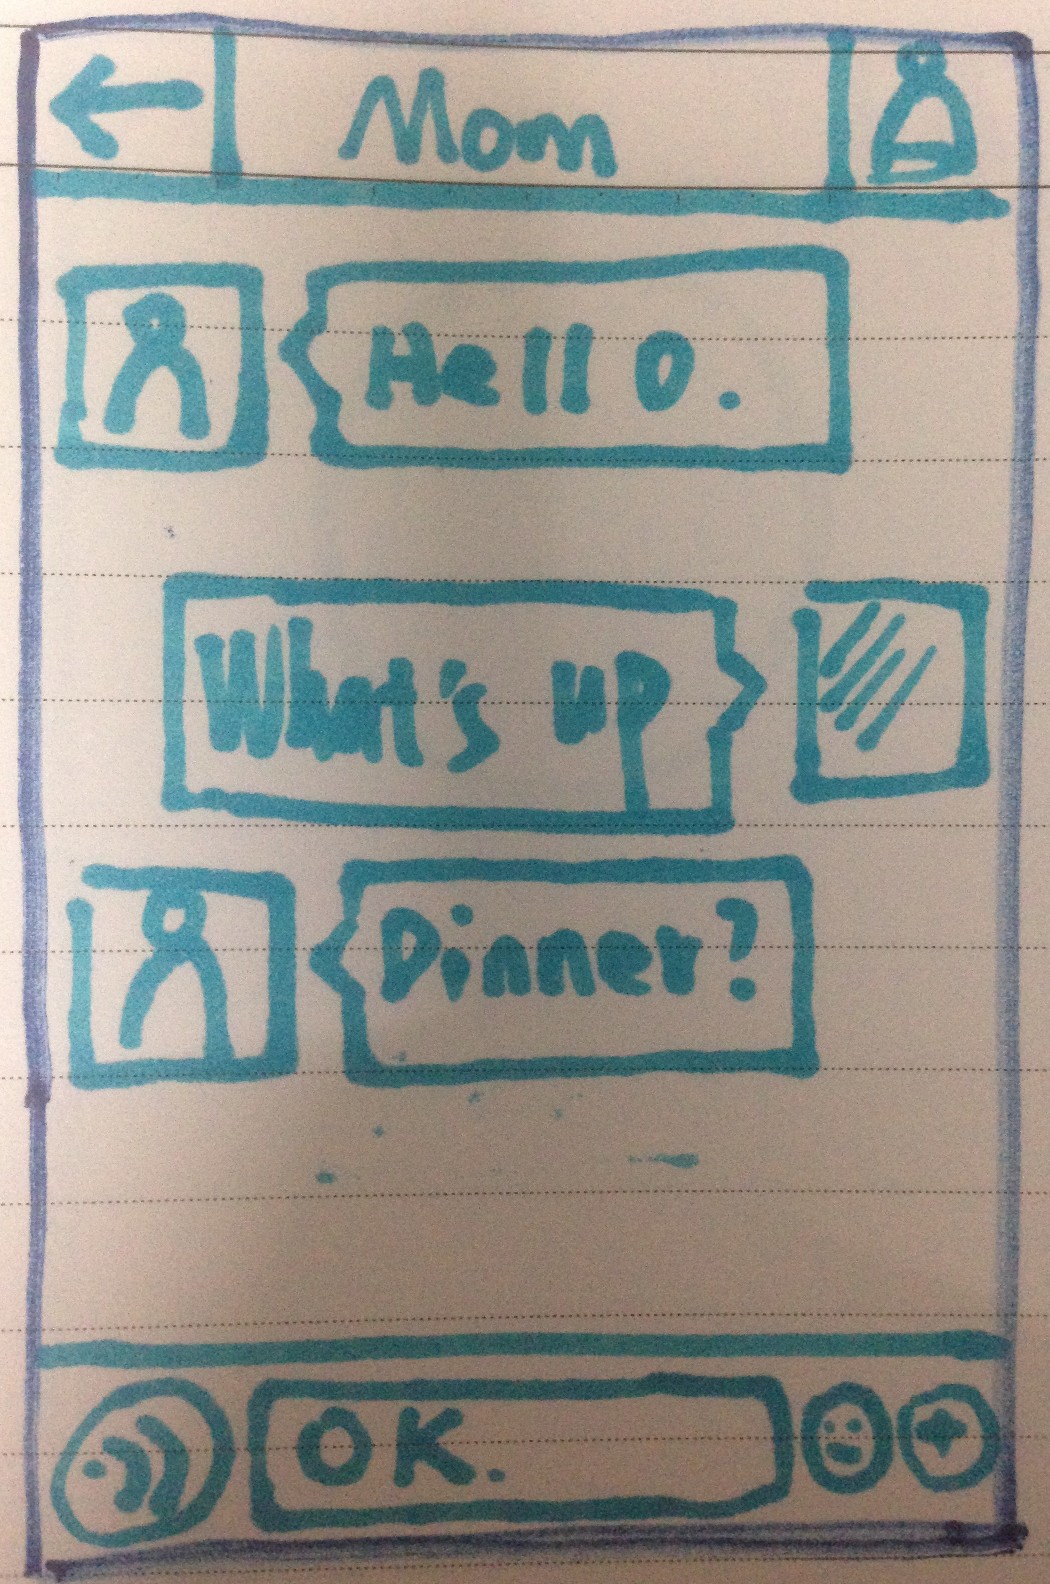 Mom
Hello.
What's up
Dinner?
OK.